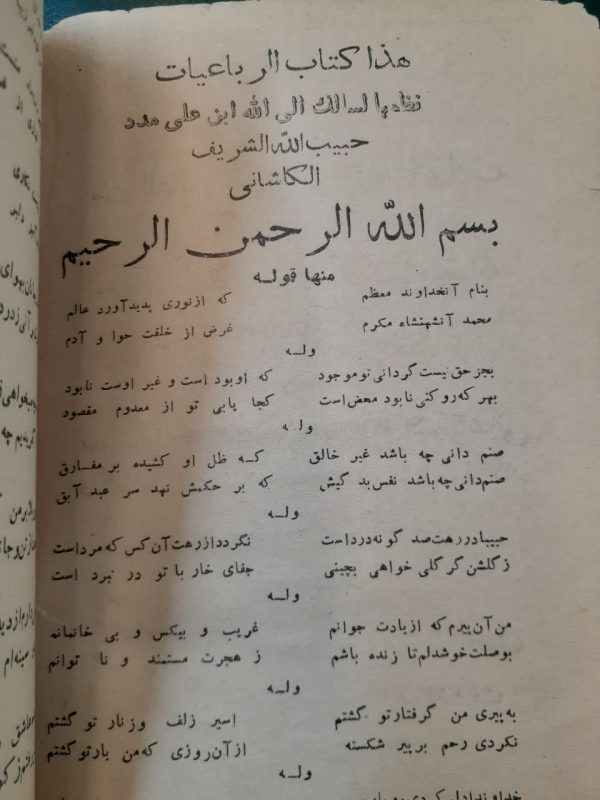 هذا كتاب الرباعيات
نظمها لسالك الى الله ابن على مدد
حبيب الله الشريف
الكاشانى
بسم الله الرحمن الرحيم
منها قوله
بنام آنخداوند معظم که ازنوری پدیدآورد عالم
محمد آنشهنشاه مکرم غرض از خلقت حوا و آدم
وله
بجز حق نیست گردانی تو موجود که اوبود است و غیر اوست نابود
بهر که رو کنی نابود محض است کجا یابی تو از معدوم مقصود
وله
صنم دانی چه باشد غیر خالق که ظل او کشیده بر مفارق
صنم دانی چه باشد نفس بد کیش که بر حکمش نهد سر عبد آبق
وله
حبیبادررهت صد گونه درداست نگردد از رهت آن کس که مرداست
ز گلشن گر گلی خواهی بچینی جفای خار با تو در نبرد است
وله
من آن پیرم که ازیادت جوانم غریب و بیکس و بی خانمانم
بوصلت خوشدلم تا زنده باشم ز هجرت مستمند و نا توانم
وله
به پیری من گرفتار تو گشتم اسیر زلف وزنار تو گشتم
نکردی رحم بر پیر شکسته از آن روزی که من یار تو گشتم
وله